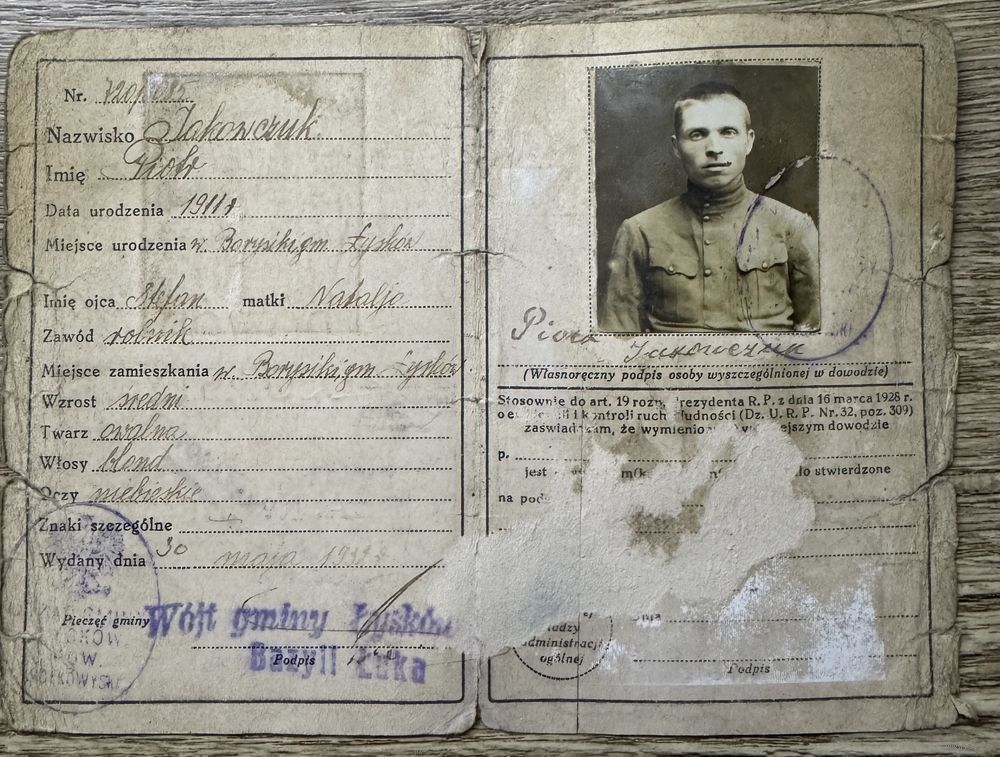 Nr. 720/
Nazwisko Jakowczuk
Imię Piotr
Data urodzenia 1911 r
Miejsce urodzenia w. Borysiki, gm. Łysków
Imię ojca Stefan matki Natalja
Zawód rolnik
Miejsce zamieszkania w. Borysiki, gm. Łysków
Wzrost średni
Twarz owalna
Włosy blond
Oczy niebieskie
Znaki szczególne
Wydany dnia 30 maja
Pieczęć gminy
Wójt gminy Łysków
Podpis
Bazyli Łuka
Piotr
Jakowczuk
(Własnoręczny podpis osoby wyszczególnionej w dowodzie)
Stosownie do art. 19 rozp. Prezydenta R. P. z dnia 16 marca 1928 r.
i kontroli ruchu ludności (Dz. U. R. P. Nr. 32, poz. 309)
zaświadczam, że
dowodzie
p.
jest
stwierdzone
na pod
administracji
ogólnej
Podpis